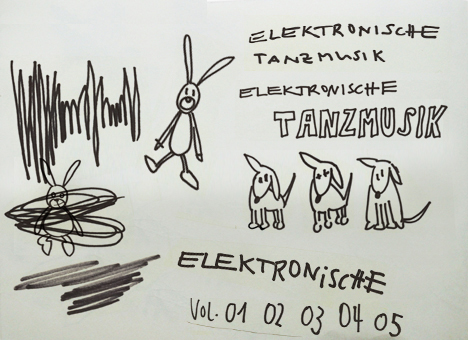 ELEKTRONISCHE
TANZMUSIK
ELEKTRONISCHE
TANZMUSIK
ELEKTRONiSCHE
VOL. 01 02 03 04 05